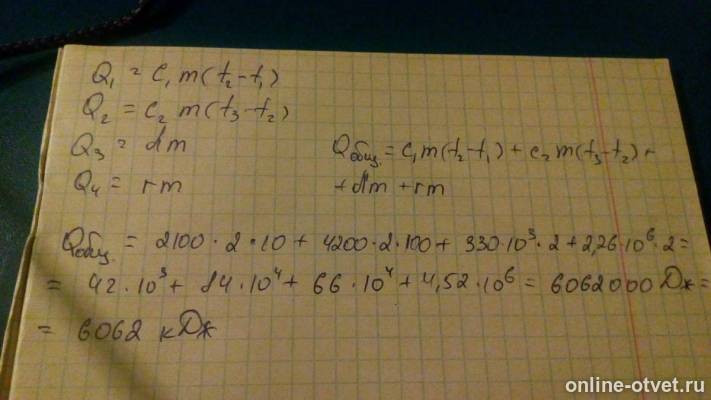 Q₁ = c₁ m(t₂-t₁)
Q₂ = c₂ m(t₃-t₂)
Q₃ = λm
Qобщ. = c₁m(t₂-t₁) + c₂m(t₃-t₂) +
Q₄ = rm
+λm +rm
Qобщ. = 2100·2·10 + 4200·2·100 + 330·10³·2 + 2,26·10⁶·2 =
= 42·10³ + 84·10⁴ + 66·10⁴ + 4,52·10⁶ = 6062000 Дж =
= 6062 кДж
online-otvet.ru